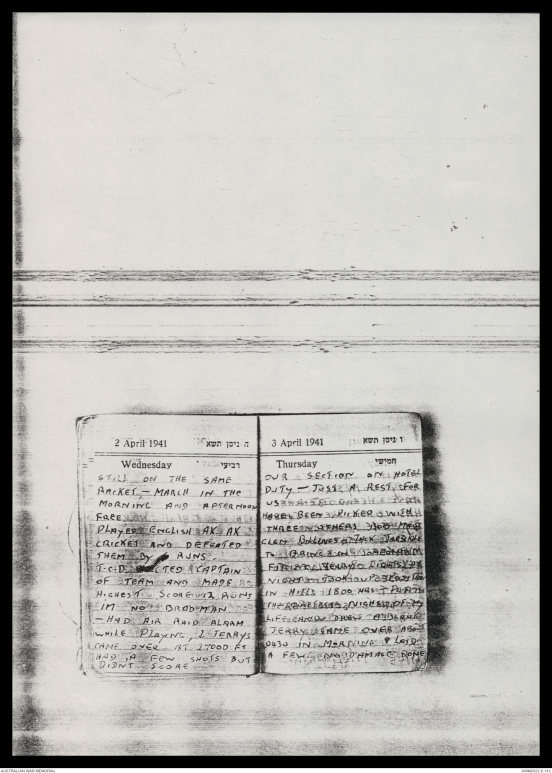 2 April 1941 ה ניסן תשא
Wednesday רביעי
STILL ON THE SAME
RACKET – MARCH IN THE
MORNING AND AFTERNOON
FREE
PLAYED ENGLISH AK AK
CRICKET AND DEFEATED
THEM BY RUNS
T.C.D. CTED CAPTAIN
OF TEAM AND MADE
HIGHEST SCORE 12 RUNS
IM NO BRADMAN
– HAD AIR RAID ALARM
WHILE PLAYNG, 2 JERRYS
CAME OVER AT 27000 FT
HAD A FEW SHOTS BUT
DIDNT SCORE
3 April 1941 ו ניסן תשא
Thursday חמישי
OUR SECTION ON HOTEL
DUTY – JUST A REST FOR
US
HAVE BEEN PICKED WITH
THREE OTHERS
CLEM & JACK
TO BRING IN
NIGHT – TOOK UP
IN HILLS 1800 HRS – PUT IN
NIGHT OF MY
LIFE AND DREW A BLANK
JERRY CAME OVER ABOUT
0430 IN MORNING & LAID
A FEW NO DAMAGE DONE
AUSTRALIAN WAR MEMORIAL